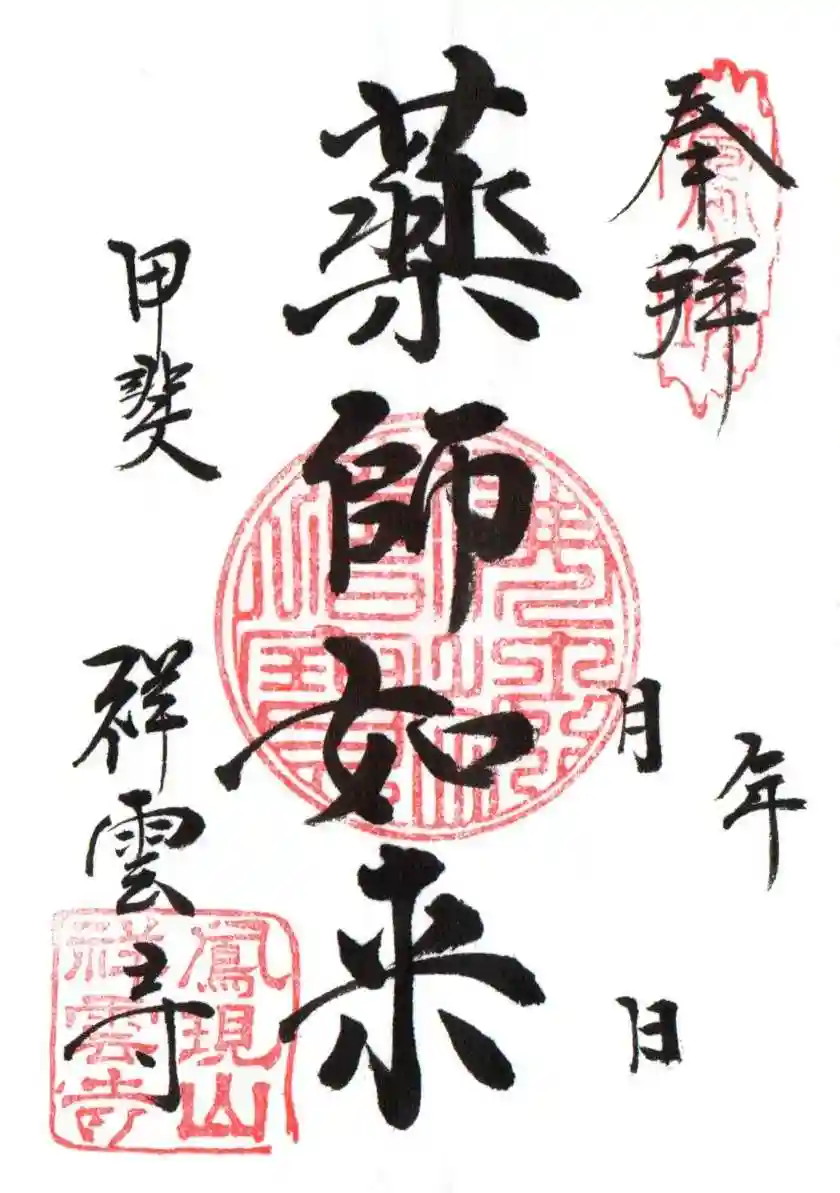 奉拝
年
月
日
薬師如来
甲斐
祥雲寺
鳳現山
祥雲寺